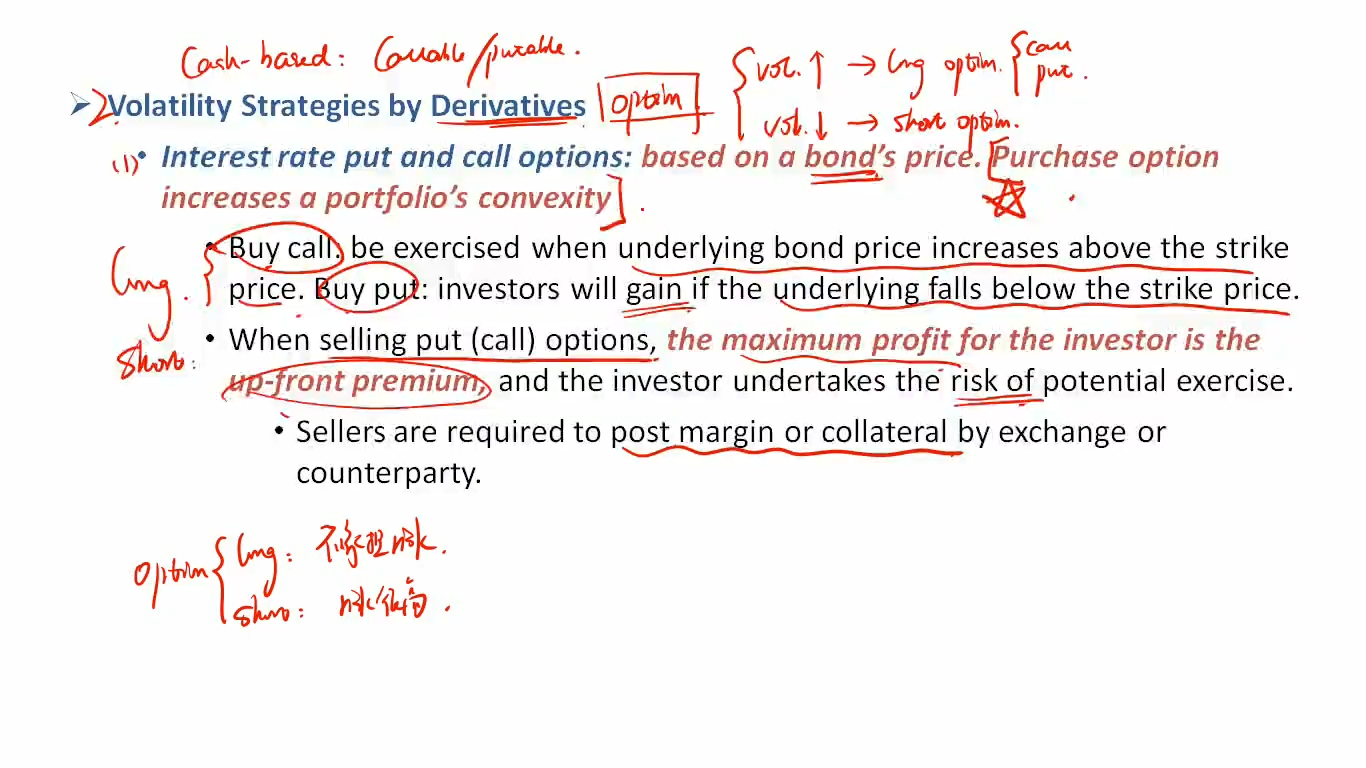 Cash-based: Callable/putable.
vol. ↑ → long option. { call
put.
2. Volatility Strategies by Derivatives option
vol. ↓ → short option.
(1) • Interest rate put and call options: based on a bond's price. [Purchase option
increases a portfolio's convexity].
long. • Buy call: be exercised when underlying bond price increases above the strike
price. Buy put: investors will gain if the underlying falls below the strike price.
short: • When selling put (call) options, the maximum profit for the investor is the
up-front premium, and the investor undertakes the risk of potential exercise.
• Sellers are required to post margin or collateral by exchange or
counterparty.
option { long: 不承担risk.
short: risk很高.